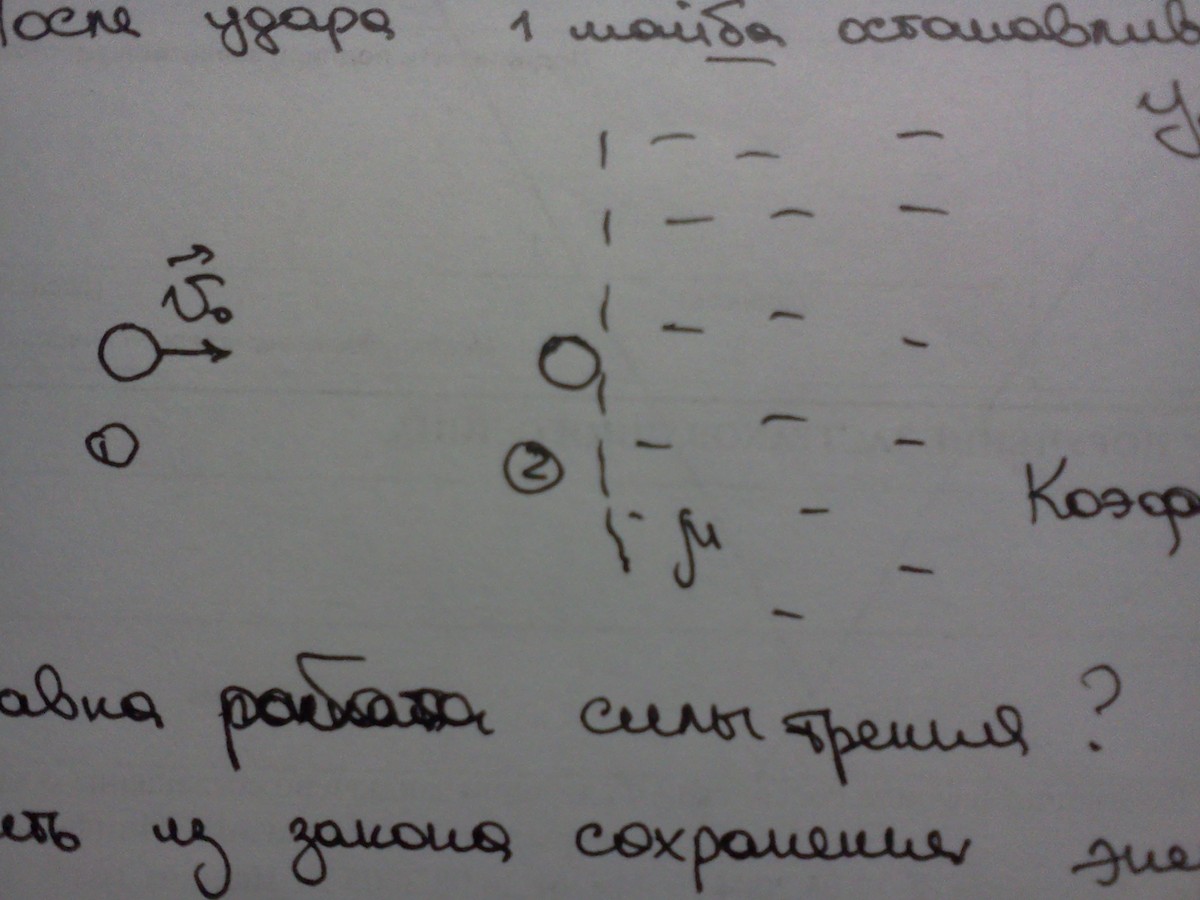 После удара 1 шайба останавлив
У
v₀
1
2
μ
Коэф
авна работа силы трения?
ить из закона сохранения эне